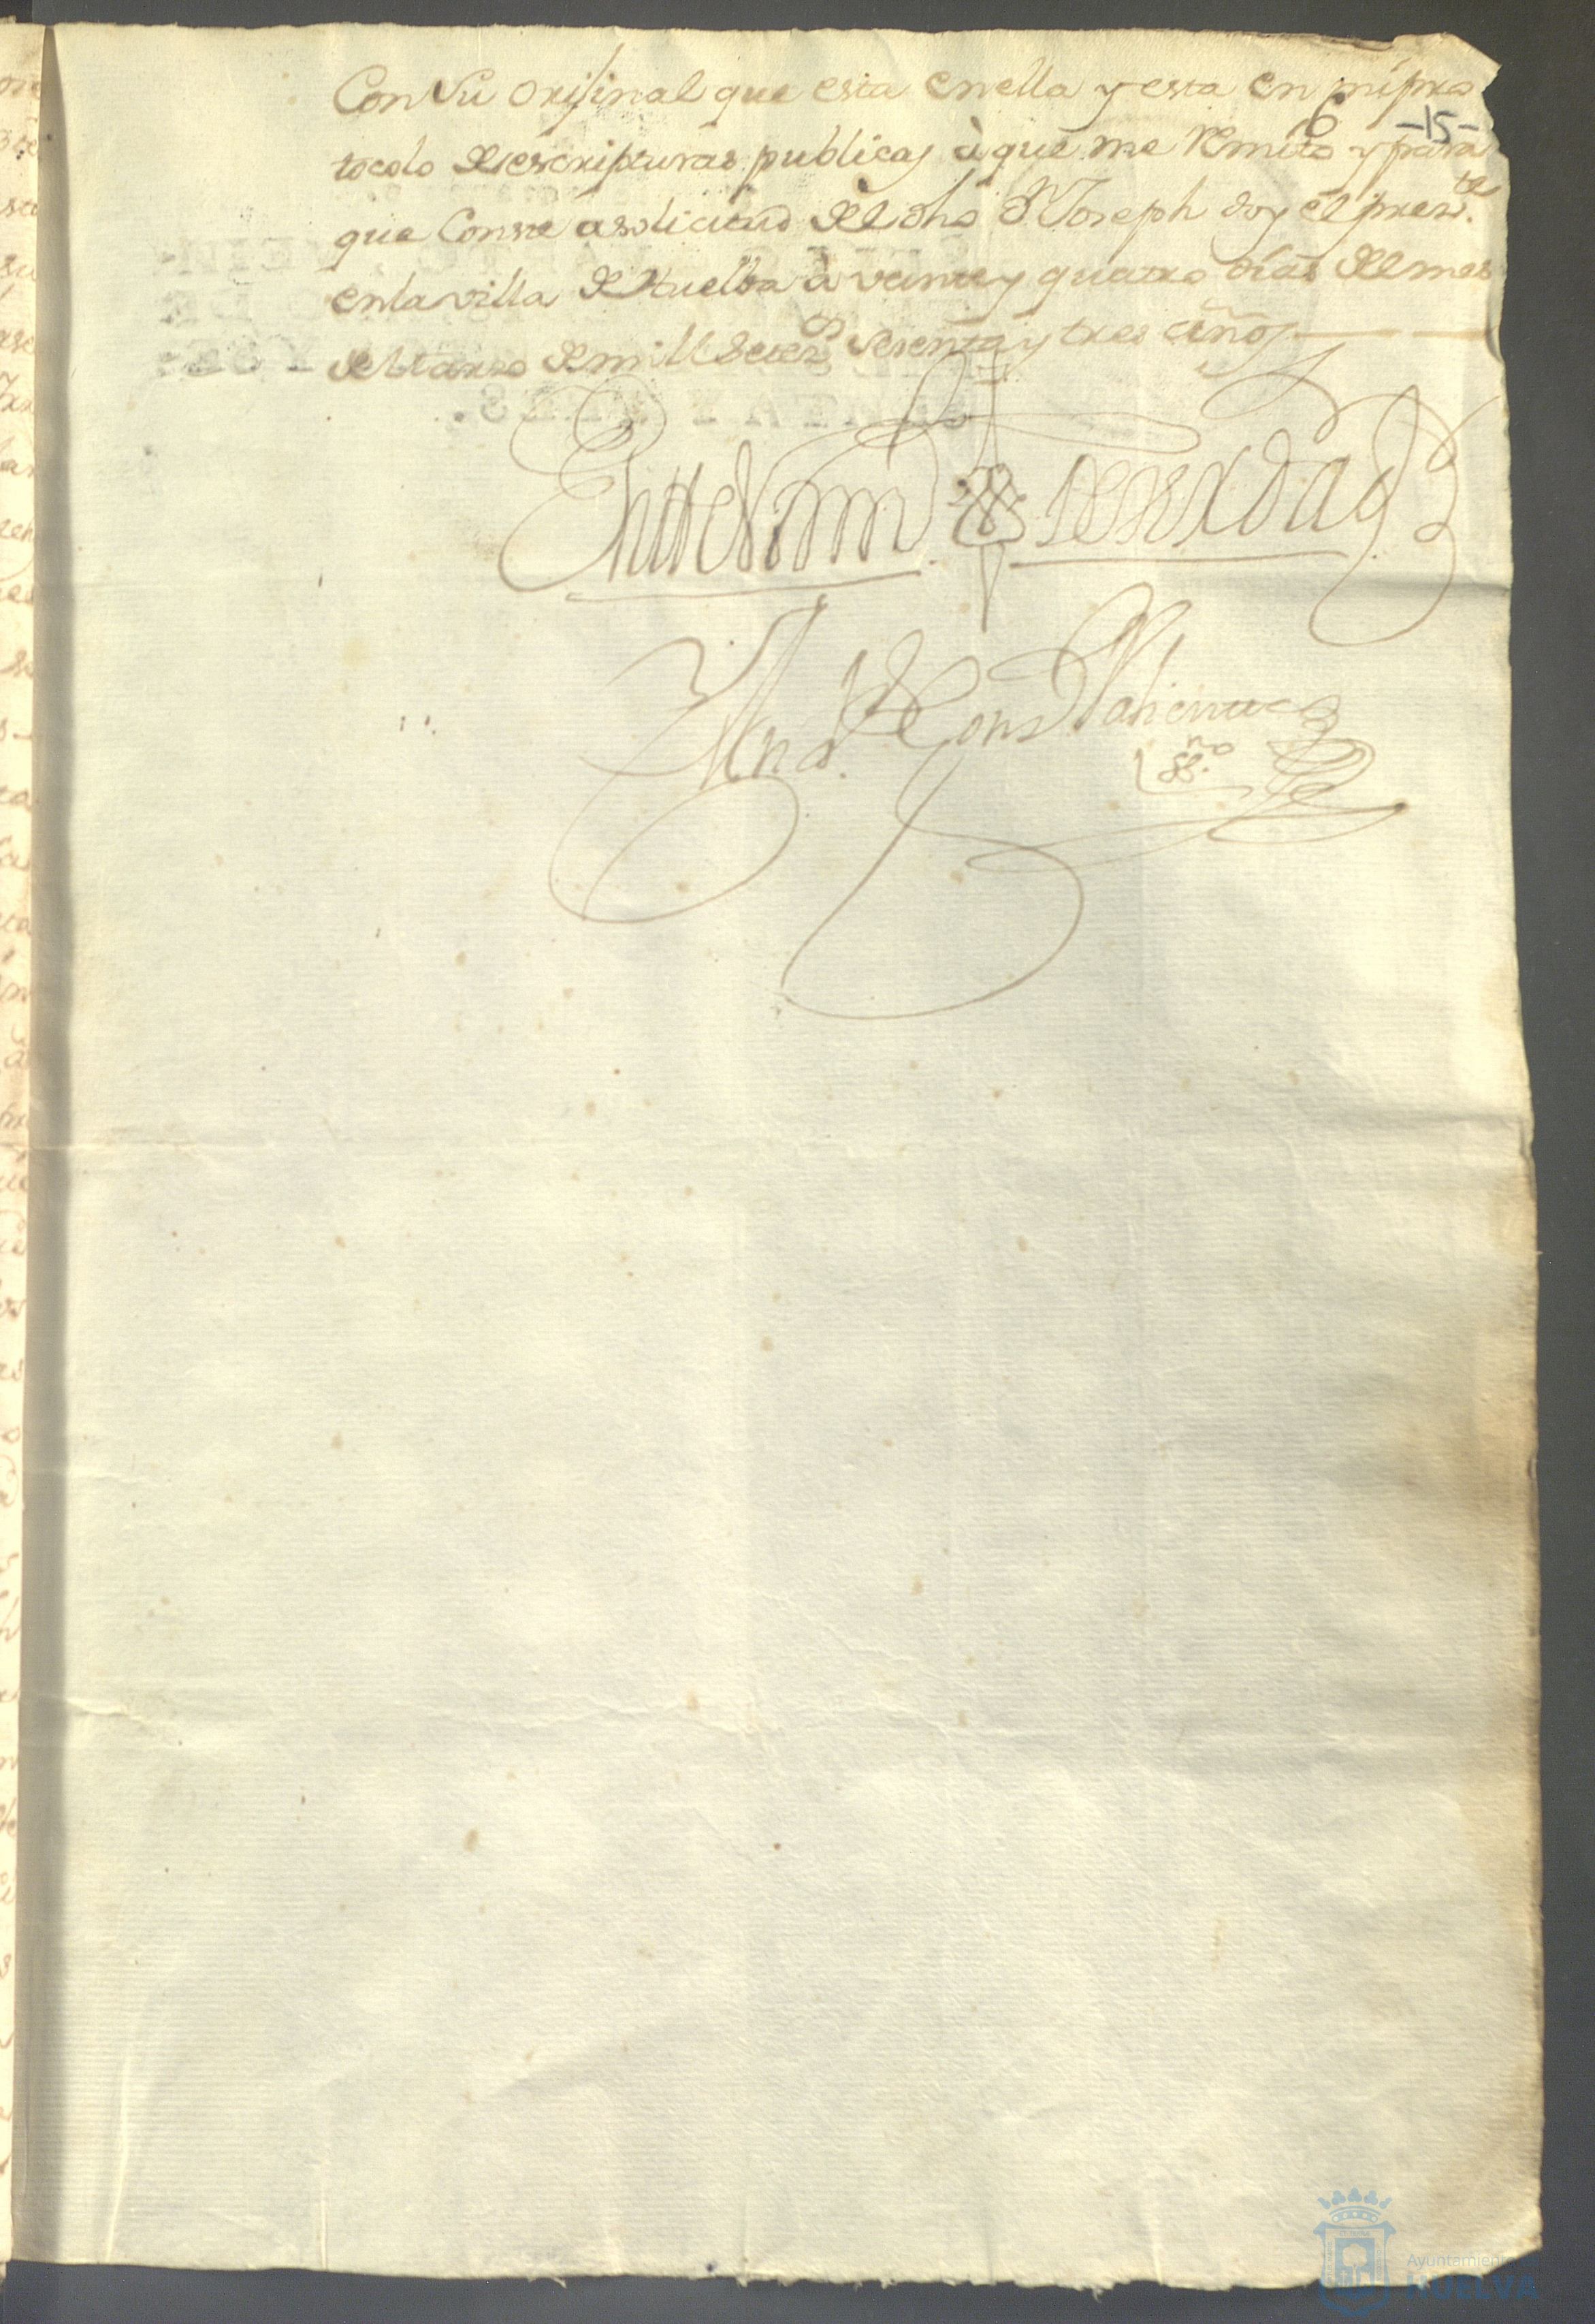 Con su orijinal que esta en ella y esta en mi pro
6 -15-
tocolo de escripturas publicas à que me remito y para
que conste a solicitud del dho Dn. Joseph doy el preste.
en la villa de Huelba à veinte y quatro dias del mes
de Marzo de mill setecs. sesenta y tres años
En testim de verdad
Jimenez
ss.no
Ayuntamiento
HUELVA